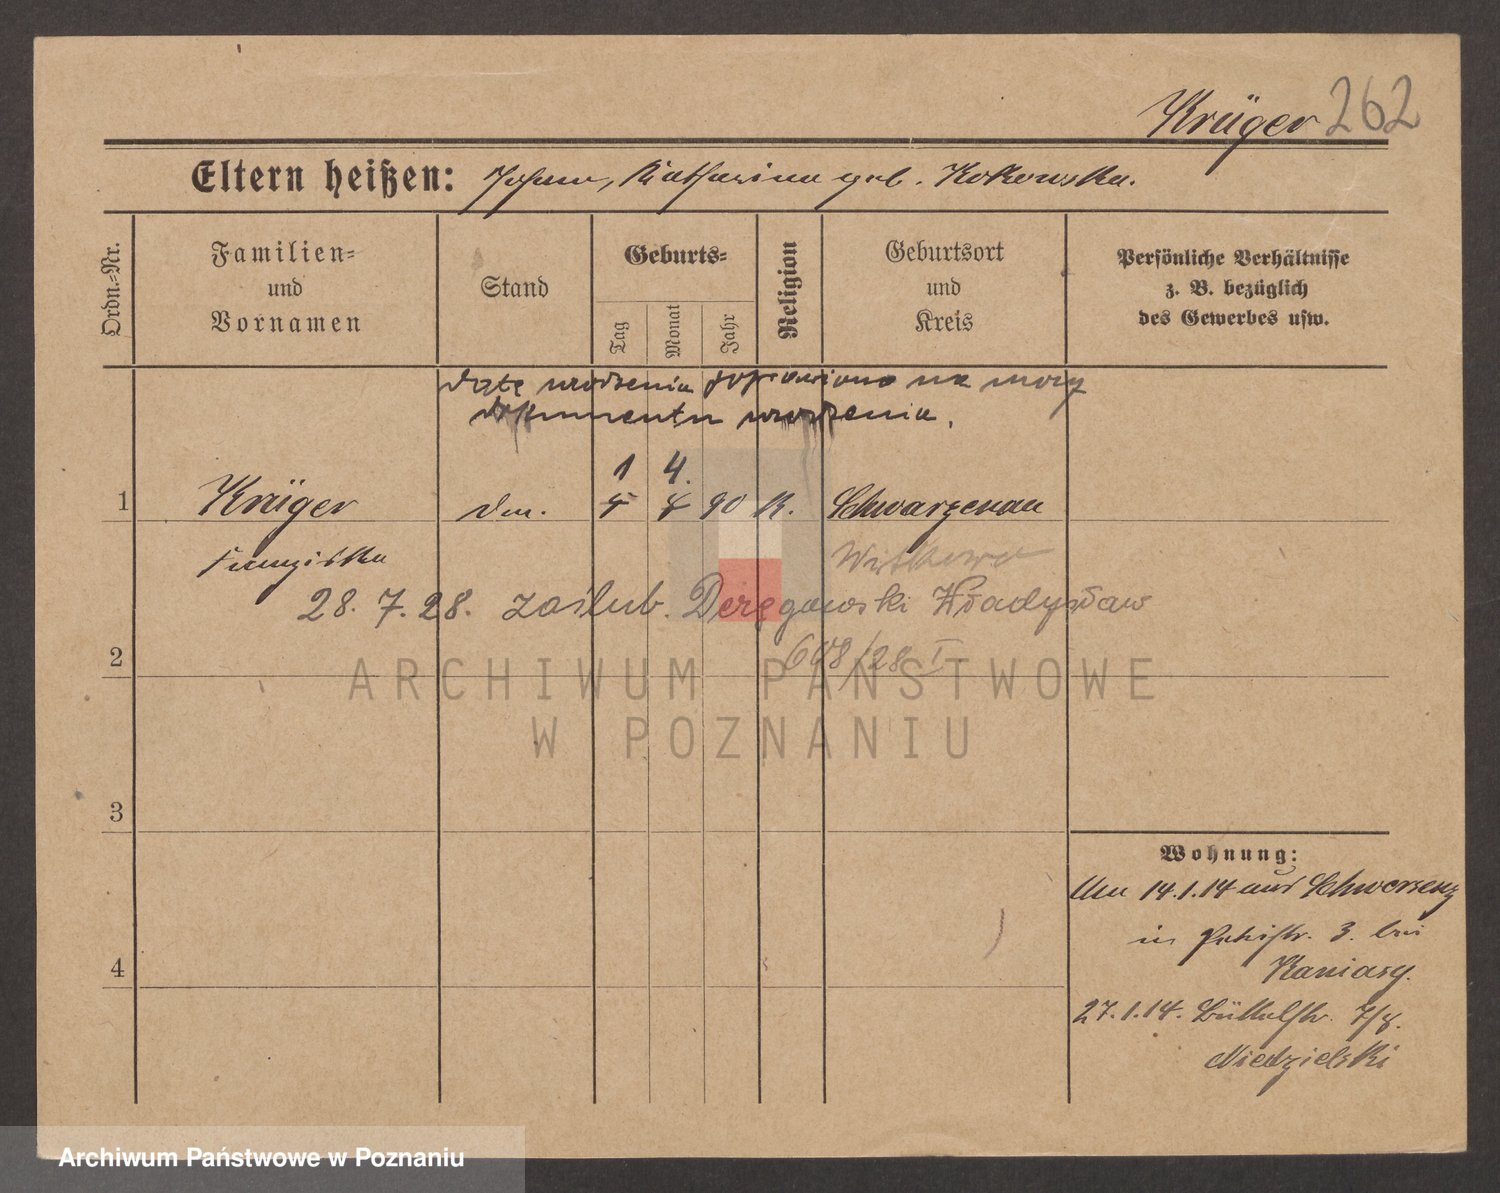 Krüger 262
Eltern heißen: Johann, Katharina geb. Kokowska.
Ordn.=Nr.
Familien=
und
Vornamen
Stand
Geburts=
Tag
Monat
Jahr
Religion
Geburtsort
und
Kreis
Persönliche Verhältnisse
z. B. bezüglich
des Gewerbes usw.
Datę urodzenia poprawiono na mocy
dokumentu urodzenia.
1 4.
1 Krüger 90 K. Schwarzenau
Franziska Witkowo
28. 7. 28. zaślub. Deręgowski Władysław
2 648/28 I
ARCHIWUM PAŃSTWOWE
W POZNANIU
3
Wohnung:
14.1.14 aus Schwersenz
in Petristr. 3. bei
4
27.1.14. Büttelstr. 7/8.
Niedzielski
Archiwum Państwowe w Poznaniu